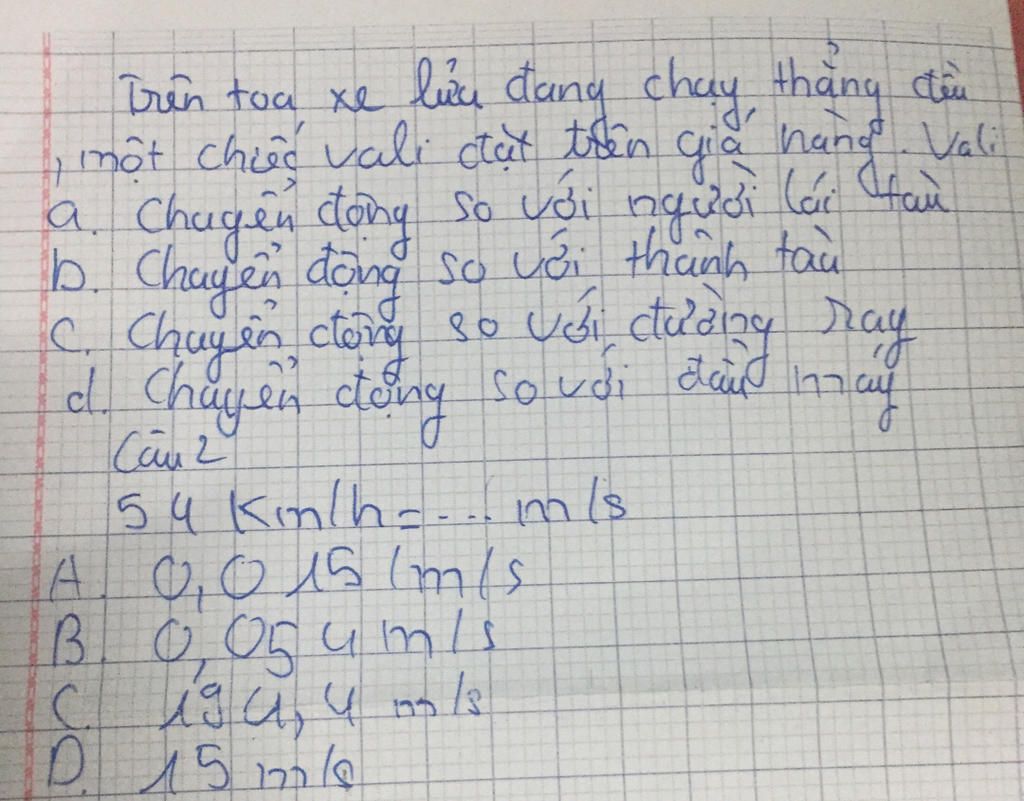 Trên toa xe lửa đang chạy thẳng đều
, một chiếc vali đặt trên giá hàng. Vali
a. Chuyển động so với người lái tàu
b. Chuyển động so với thành tàu
c. Chuyển động so với đường ray
d. Chuyển động so với đầu máy
Câu 2
54 Km/h = ... m/s
A. 0,015 m/s
B. 0,054 m/s
C. 194,4 m/s
D. 15 m/s